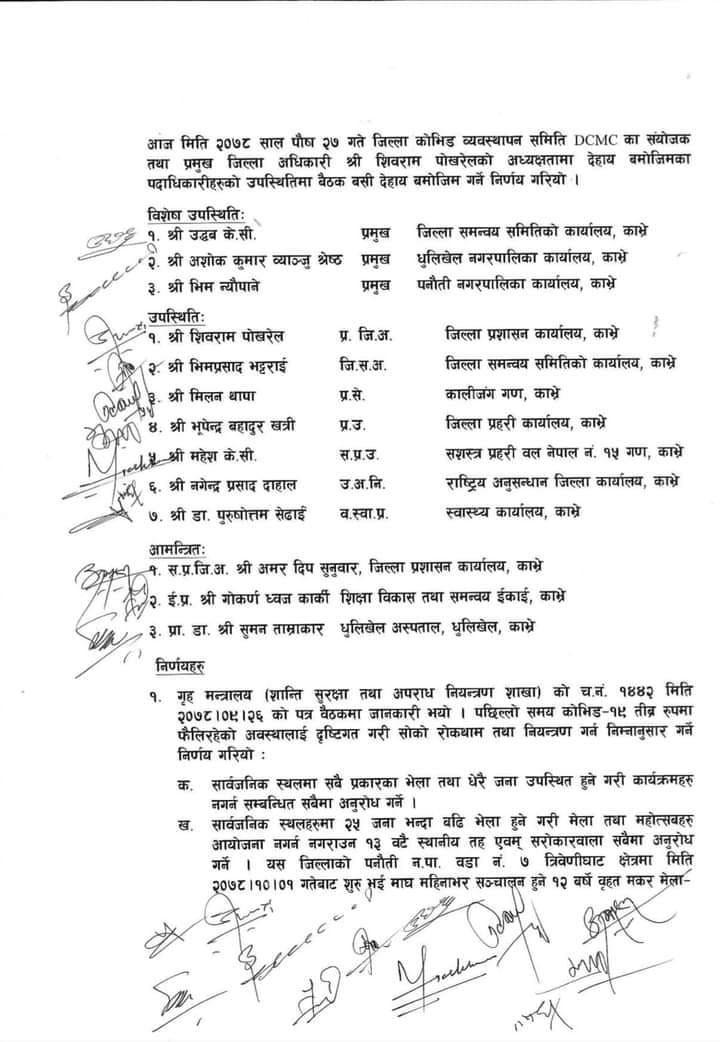 आज मिति २०७८ साल पौष २७ गते जिल्ला कोभिड व्यवस्थापन समिति DCMC का संयोजक
तथा प्रमुख जिल्ला अधिकारी श्री शिवराम पोखरेलको अध्यक्षतामा देहाय बमोजिमका
पदाधिकारीहरुको उपस्थितिमा बैठक बसी देहाय बमोजिम गर्ने निर्णय गरियो ।
विशेष उपस्थितिः
१. श्री उद्धब के.सी. प्रमुख जिल्ला समन्वय समितिको कार्यालय, काभ्रे
२. श्री अशोक कुमार व्याञ्जु श्रेष्ठ प्रमुख धुलिखेल नगरपालिका कार्यालय, काभ्रे
३. श्री भिम न्यौपाने प्रमुख पनौती नगरपालिका कार्यालय, काभ्रे
उपस्थितिः
१. श्री शिवराम पोखरेल प्र. जि.अ. जिल्ला प्रशासन कार्यालय, काभ्रे
२. श्री भिमप्रसाद भट्टराई जि.स.अ. जिल्ला समन्वय समितिको कार्यालय, काभ्रे
३. श्री मिलन थापा प्र.से. कालीजंग गण, काभ्रे
४. श्री भूपेन्द्र बहादुर खत्री प्र.उ. जिल्ला प्रहरी कार्यालय, काभ्रे
५ श्री महेश के.सी. स.प्र.उ. सशस्त्र प्रहरी वल नेपाल नं. १५ गण, काभ्रे
६. श्री नगेन्द्र प्रसाद दाहाल उ.अ.नि. राष्ट्रिय अनुसन्धान जिल्ला कार्यालय, काभ्रे
७. श्री डा. पुरुषोत्तम सेढाई व.स्वा.प्र. स्वास्थ्य कार्यालय, काभ्रे
आमन्त्रितः
१. स.प्र.जि.अ. श्री अमर दिप सुनुवार, जिल्ला प्रशासन कार्यालय, काभ्रे
२. ई.प्र. श्री गोकर्ण ध्वज कार्की शिक्षा विकास तथा समन्वय ईकाई, काभ्रे
३. प्रा. डा. श्री सुमन ताम्राकार धुलिखेल अस्पताल, धुलिखेल, काभ्रे
निर्णयहरु
१. गृह मन्त्रालय (शान्ति सुरक्षा तथा अपराध नियन्त्रण शाखा) को च.नं. १४४२ मिति
२०७८।०९।२६ को पत्र बैठकमा जानकारी भयो । पछिल्लो समय कोभिड-१९ तीब्र रुपमा
फैलिरहेको अवस्थालाई दृष्टिगत गरी सोको रोकथाम तथा नियन्त्रण गर्न निम्नानुसार गर्ने
निर्णय गरियो :
क. सार्वजनिक स्थलमा सबै प्रकारका भेला तथा धेरै जना उपस्थित हुने गरी कार्यक्रमहरु
नगर्न सम्बन्धित सबैमा अनुरोध गर्ने ।
ख. सार्वजनिक स्थलहरुमा २५ जना भन्दा बढि भेला हुने गरी मेला तथा महोत्सबहरु
आयोजना नगर्न नगराउन १३ वटै स्थानीय तह एवम् सरोकारवाला सबैमा अनुरोध
गर्ने । यस जिल्लाको पनौती न.पा. वडा नं. ७ त्रिवेणीघाट क्षेत्रमा मिति
२०७८।१०।०१ गतेबाट शुरु भई माघ महिनाभर सञ्चालन हुने १२ बर्षे वृहत मकर मेला-